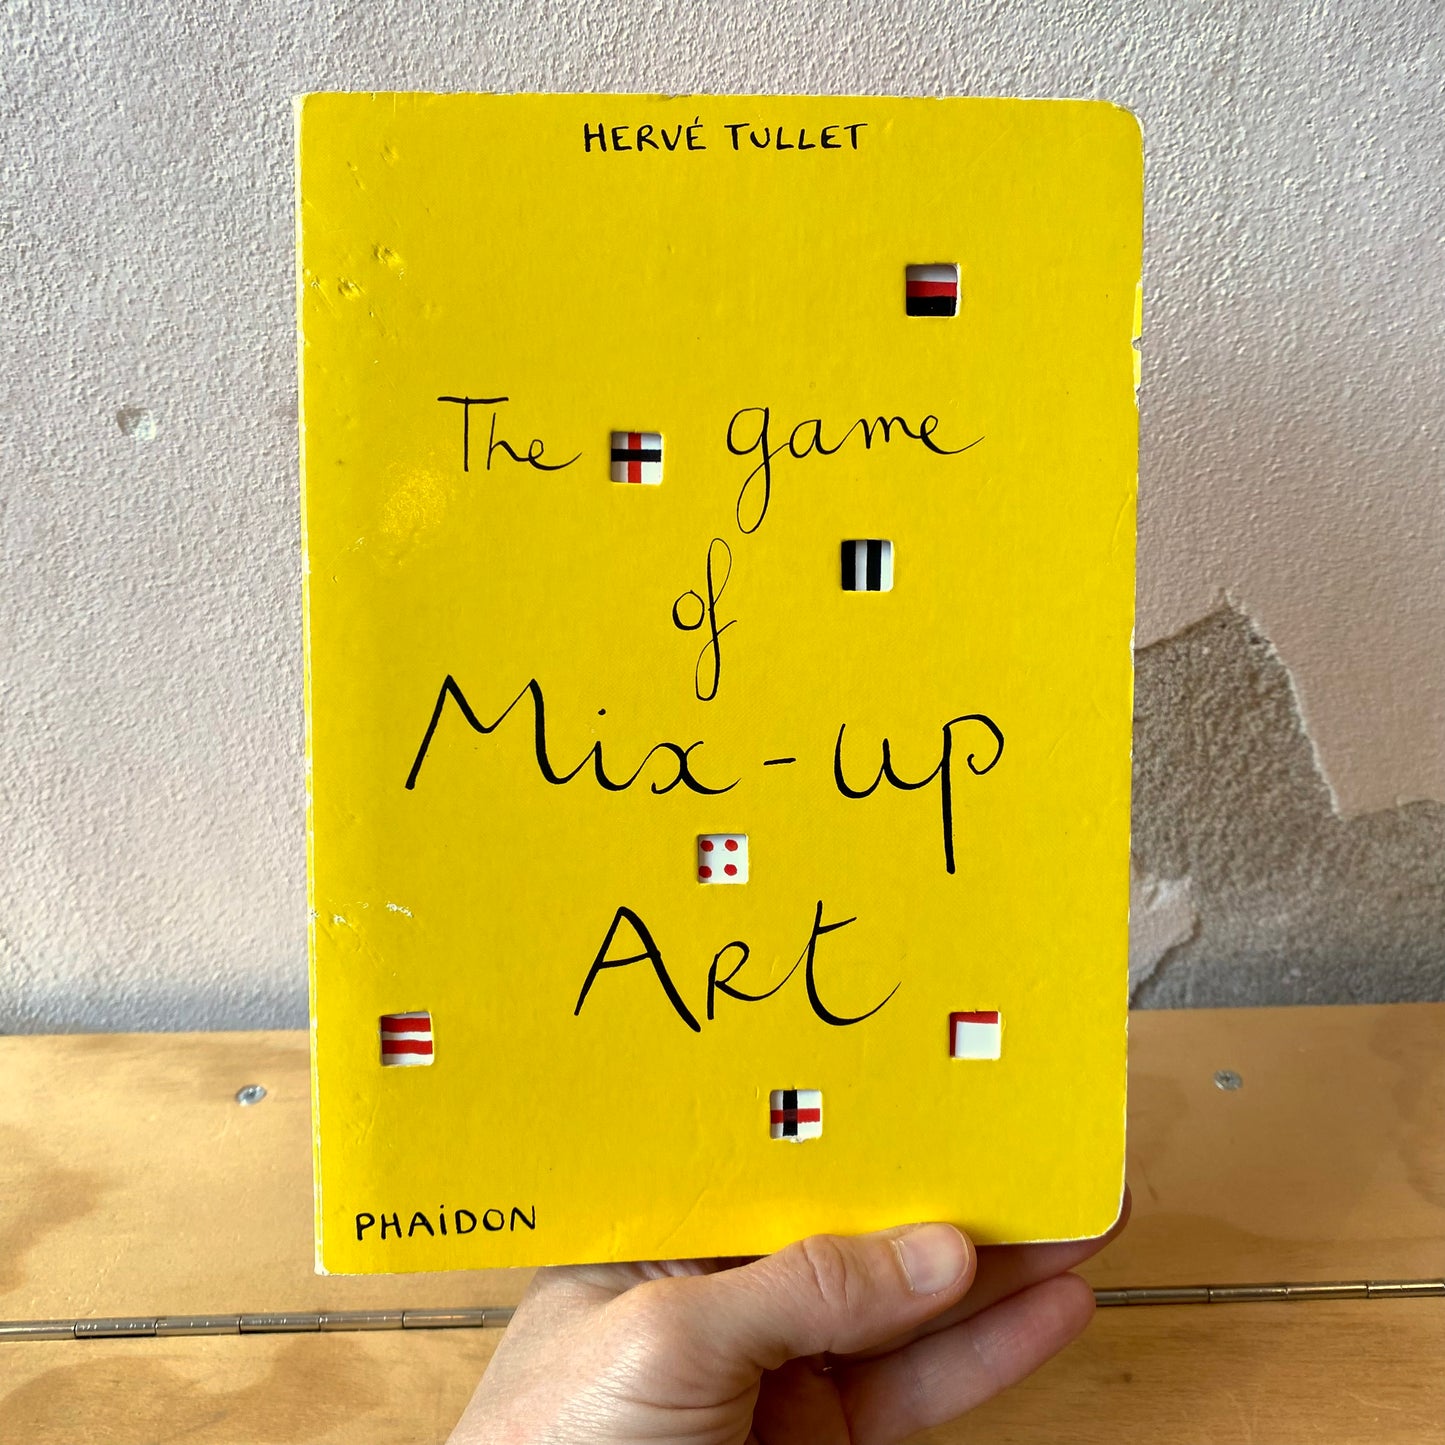 HERVÉ TULLET
The game
of
Mix-up
ART
PHAiDON